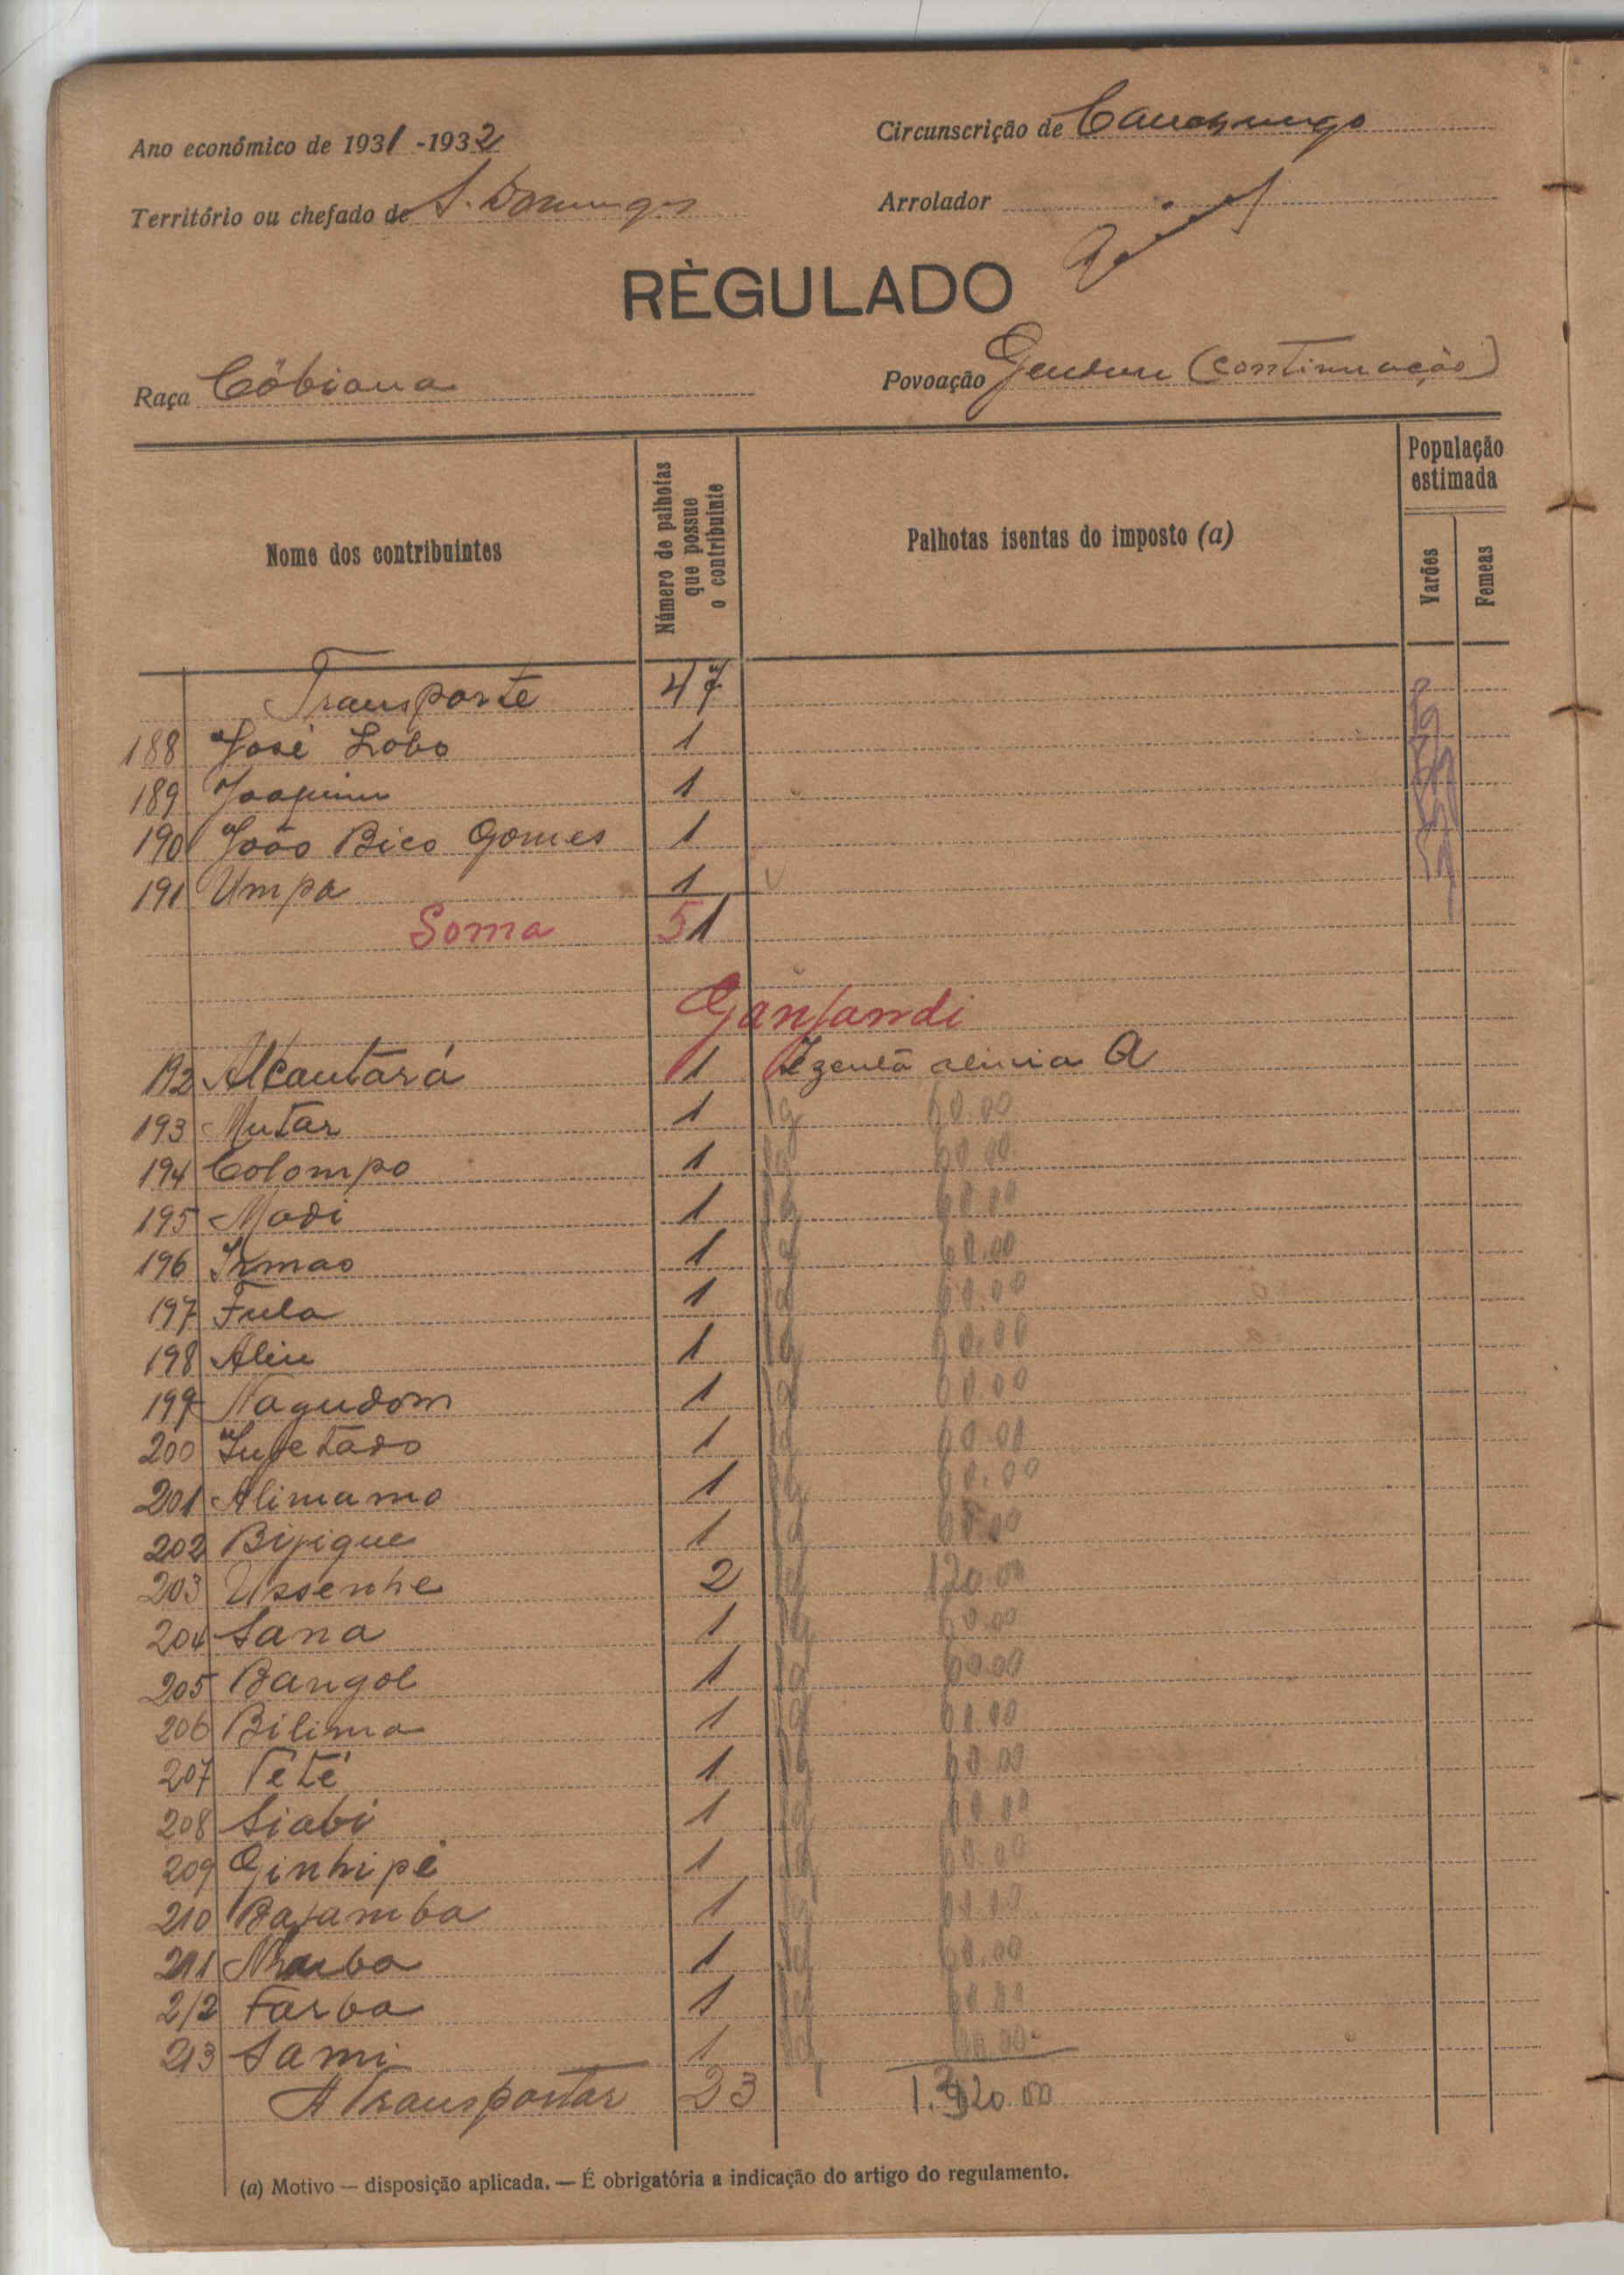 Ano económico de 1931-1932
Circunscrição de Canchungo
Território ou chefado de S. Domingos
Arrolador
RÈGULADO
Raça Côbiana
Povoação (continuação)
Nome dos contribuintes
Número de palhotas que possue o contribuinte
Palhotas isentas do imposto (a)
População estimada
Varões
Femeas
Transporte 47
188 José Lobo 1
189 Joaquim 1
190 João Bico Gomes 1
191 Umpa 1
Soma 51
Ganjandi
192 Alcantará 1 Izenta alinia A
193 Mutar 1 Pg 60.00
194 Colompo 1 Pg 60.00
195 Modi 1 Pg 60.00
196 Irmao 1 Pg 60.00
197 Fula 1 Pg 60.00
198 Aliu 1 Pg 60.00
199 Nagudom 1 Pg 60.00
200 1 Pg 60.00
201 Alimamo 1 Pg 60.00
202 Bijique 1 Pg 60.00
203 Ussenhe 2 Pg 120.00
204 Sana 1 Pg 60.00
205 Bangol 1 Pg 60.00
206 Bilima 1 Pg 60.00
207 Tété 1 Pg 60.00
208 Siabi 1 Pg 60.00
209 Ginhipé 1 Pg 60.00
210 Bajamba 1 Pg 60.00
211 1 Pg 60.00
212 Farba 1 Pg 60.00
213 Sami 1 Pg 60.00
A Transportar 23 1.320.00
(a) Motivo — disposição aplicada. — É obrigatória a indicação do artigo do regulamento.